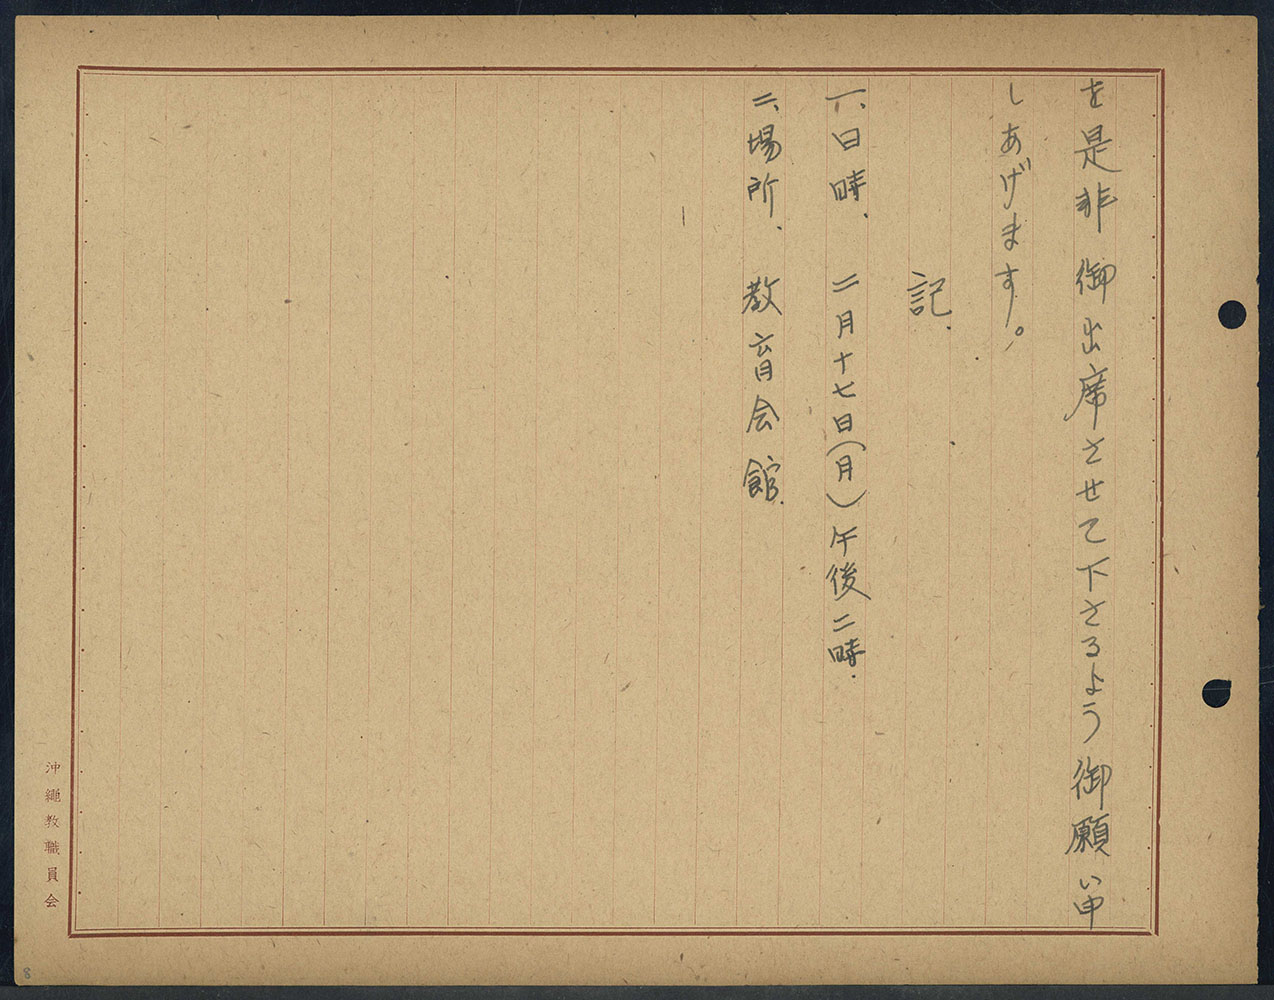 を是非御出席させて下さるよう御願い申
しあげます。
記.
一、日時、二月十七日(月)午後二時.
二、場所、教育会館.
沖縄教職員会
8